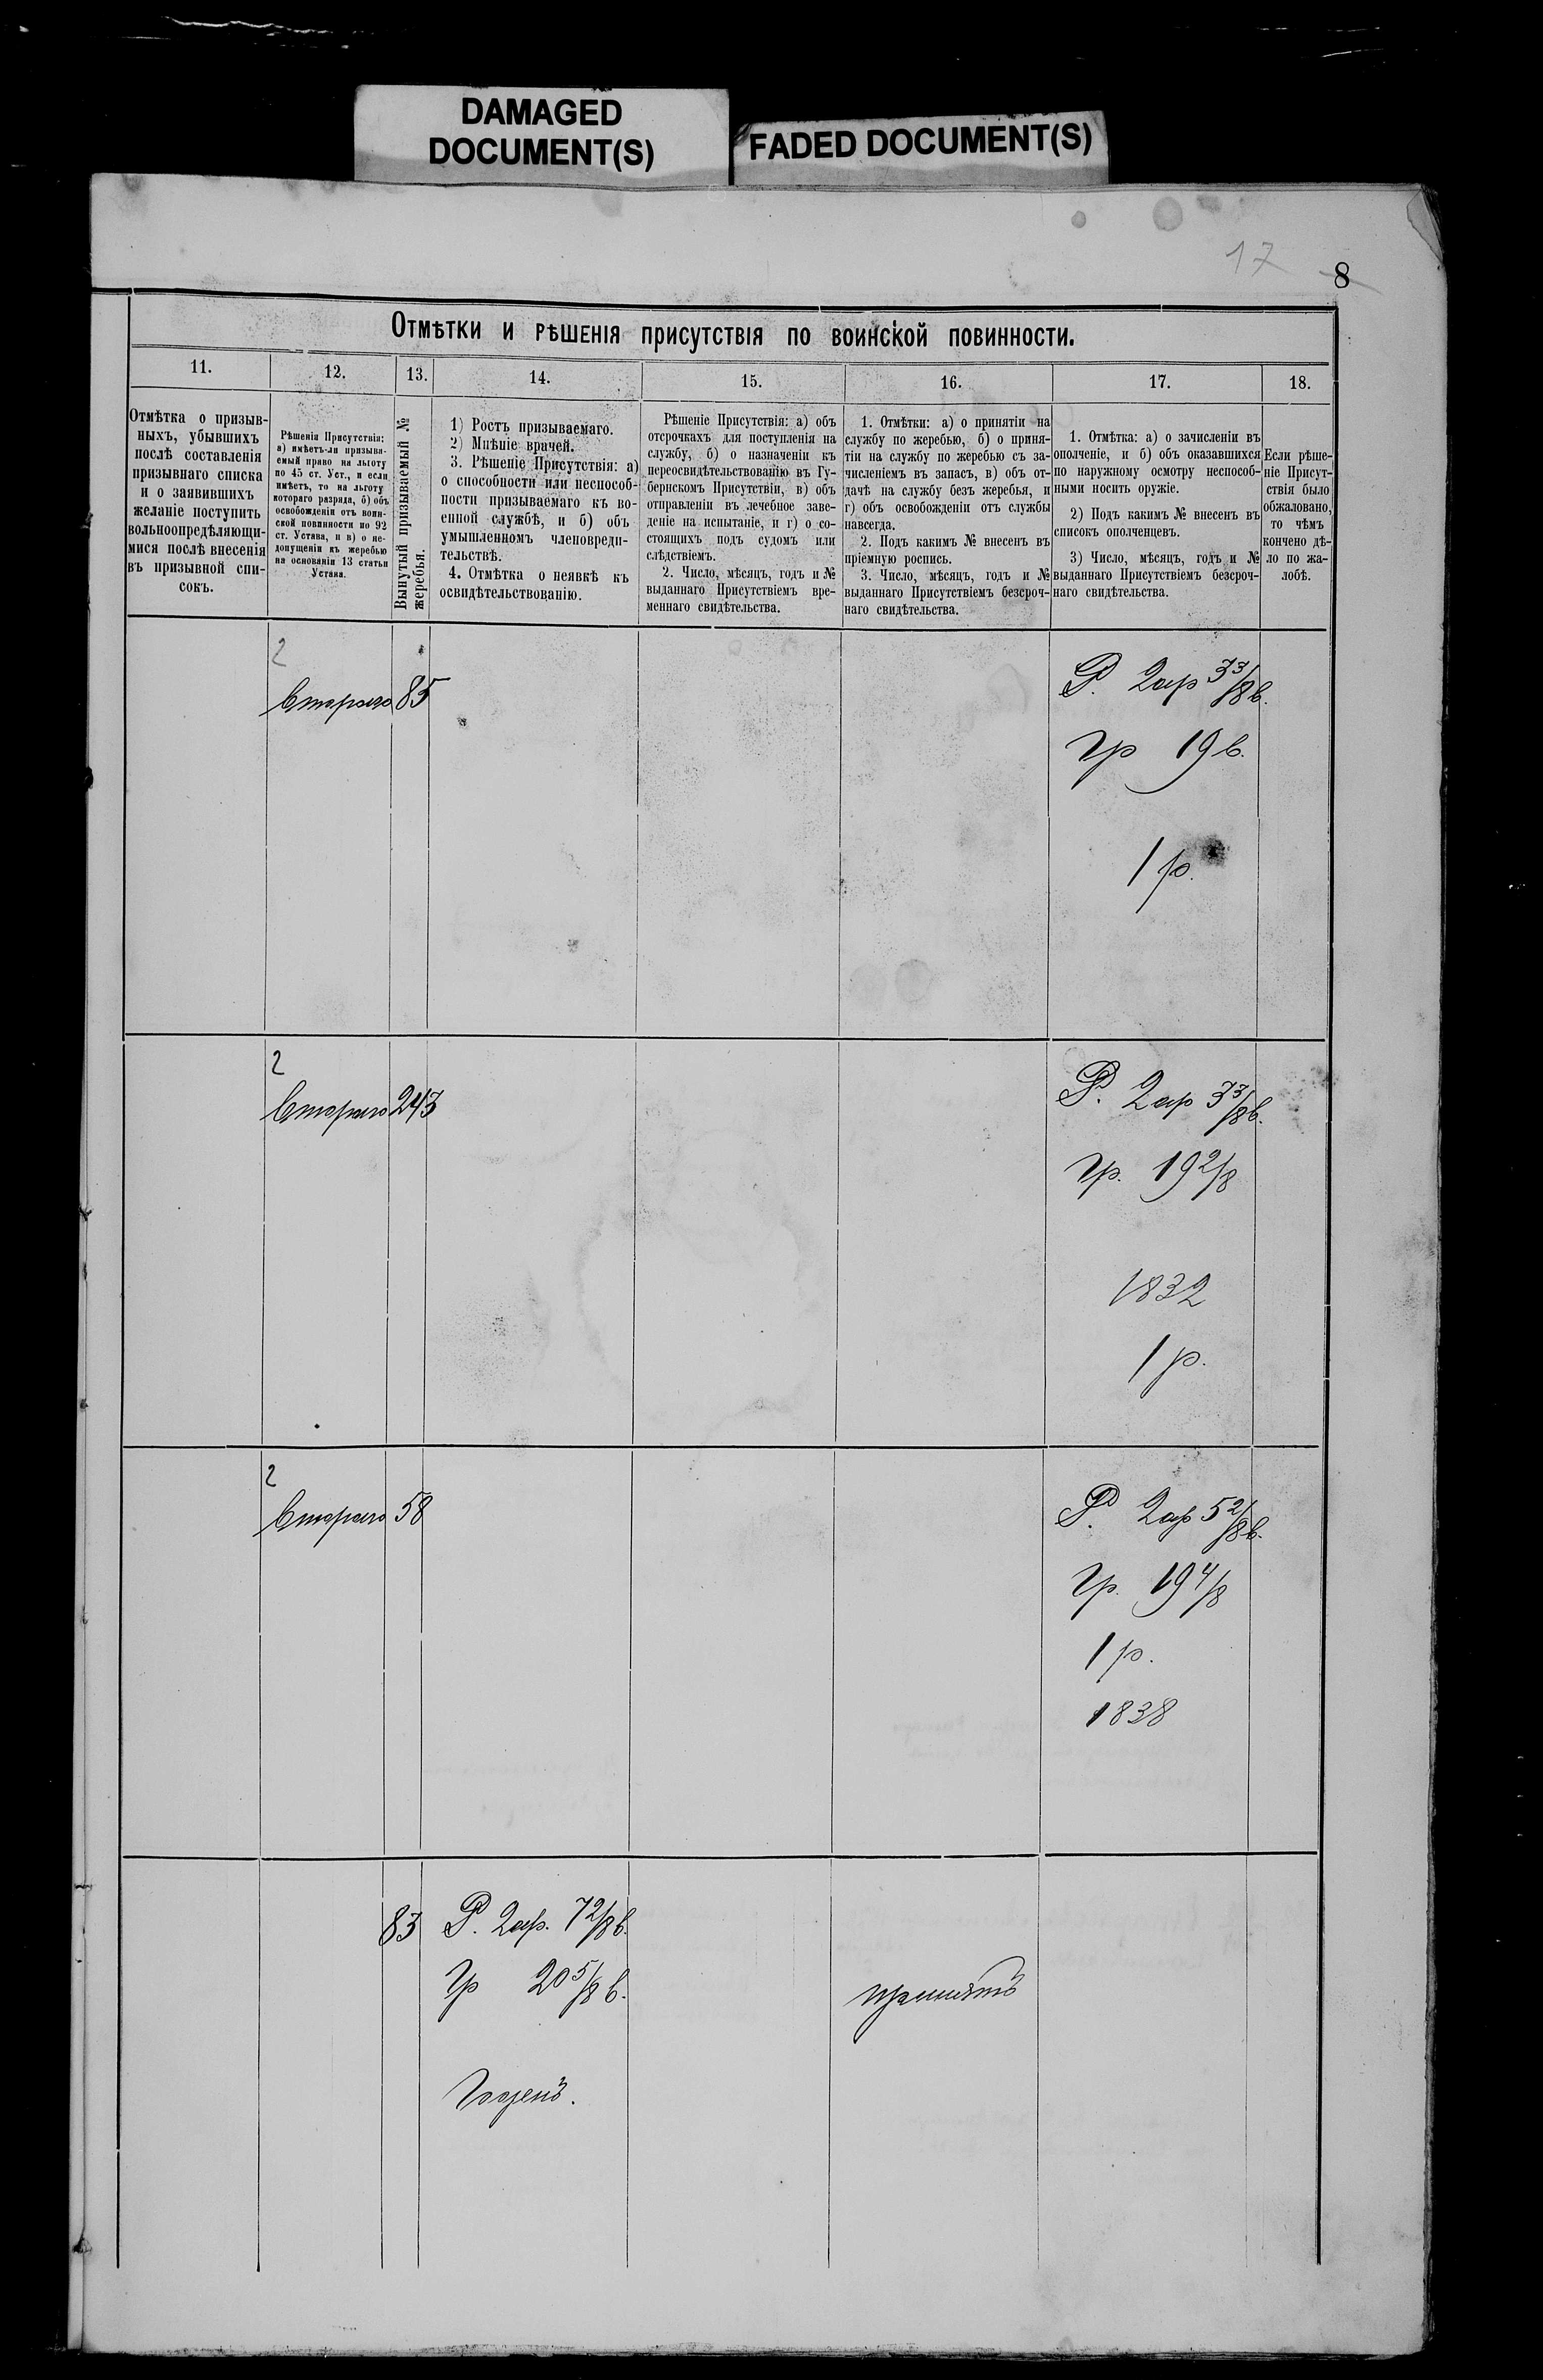 DAMAGED
DOCUMENT(S)
FADED DOCUMENT(S)
17
8
Отмѣтки и рѣшенія присутствія по воинской повинности.
11.
12.
13.
14.
15.
16.
17.
18.
Отмѣтка о призыв-
ныхъ, убывшихъ
послѣ составленія
призывнаго списка
и о заявившихъ
желаніе поступить
вольноопредѣляющи-
мися послѣ внесенія
въ призывной спи-
сокъ.
Рѣшенія Присутствія:
а) имѣетъ-ли призыва-
емый право на льготу
по 45 ст. Уст., и если
имѣетъ, то на льготу
котораго разряда, б) объ
освобожденіи отъ воин-
ской повинности по 92
ст. Устава, и в) о не-
допущеніи къ жеребью
на основаніи 13 статьи
Устава.
Вынутый призываемый №
жеребья.
1) Ростъ призываемаго.
2) Мнѣніе врачей.
3. Рѣшеніе Присутствія: а)
о способности или неспособ-
ности призываемаго къ во-
енной службѣ, и б) объ
умышленномъ членовреди-
тельствѣ.
4. Отмѣтка о неявкѣ къ
освидѣтельствованію.
Рѣшеніе Присутствія: а) объ
отсрочкахъ для поступленія на
службу, б) о назначеніи къ
переосвидѣтельствованію въ Гу-
бернскомъ Присутствіи, в) объ
отправленіи въ лечебное заве-
деніе на испытаніе, и г) о со-
стоящихъ подъ судомъ или
слѣдствіемъ.
2. Число, мѣсяцъ, годъ и №
выданнаго Присутствіемъ вре-
меннаго свидѣтельства.
1. Отмѣтки: а) о принятіи на
службу по жеребью, б) о приня-
тіи на службу по жеребью съ за-
численіемъ въ запасъ, в) объ от-
дачѣ на службу безъ жеребья, и
г) объ освобожденіи отъ службы
навсегда.
2. Подъ какимъ № внесенъ въ
пріемную роспись.
3. Число, мѣсяцъ, годъ и №
выданнаго Присутствіемъ безсроч-
наго свидѣтельства.
1. Отмѣтка: а) о зачисленіи въ
ополченіе, и б) объ оказавшихся
по наружному осмотру неспособ-
ными носить оружіе.
2) Подъ какимъ № внесенъ въ
списокъ ополченцевъ.
3) Число, мѣсяцъ, годъ и №
выданнаго Присутствіемъ безсроч-
наго свидѣтельства.
Если рѣше-
ніе Присут-
ствія было
обжаловано,
то чѣмъ
кончено дѣ-
ло по жа-
лобѣ.
2
Второго
85
Р. 2ар 3 3/8 в.
Гр 19 в.
1 р.
2
Второго
243
Р. 2ар 3 3/8 в.
Гр. 19 2/8
1832
1 р.
2
Второго
58
Р. 2ар 5 2/8 в.
Гр. 19 4/8
1 р.
1838
83
Р. 2ар. 7 2/8 в.
Гр 20 5/8 в.
Годенъ.
принятъ